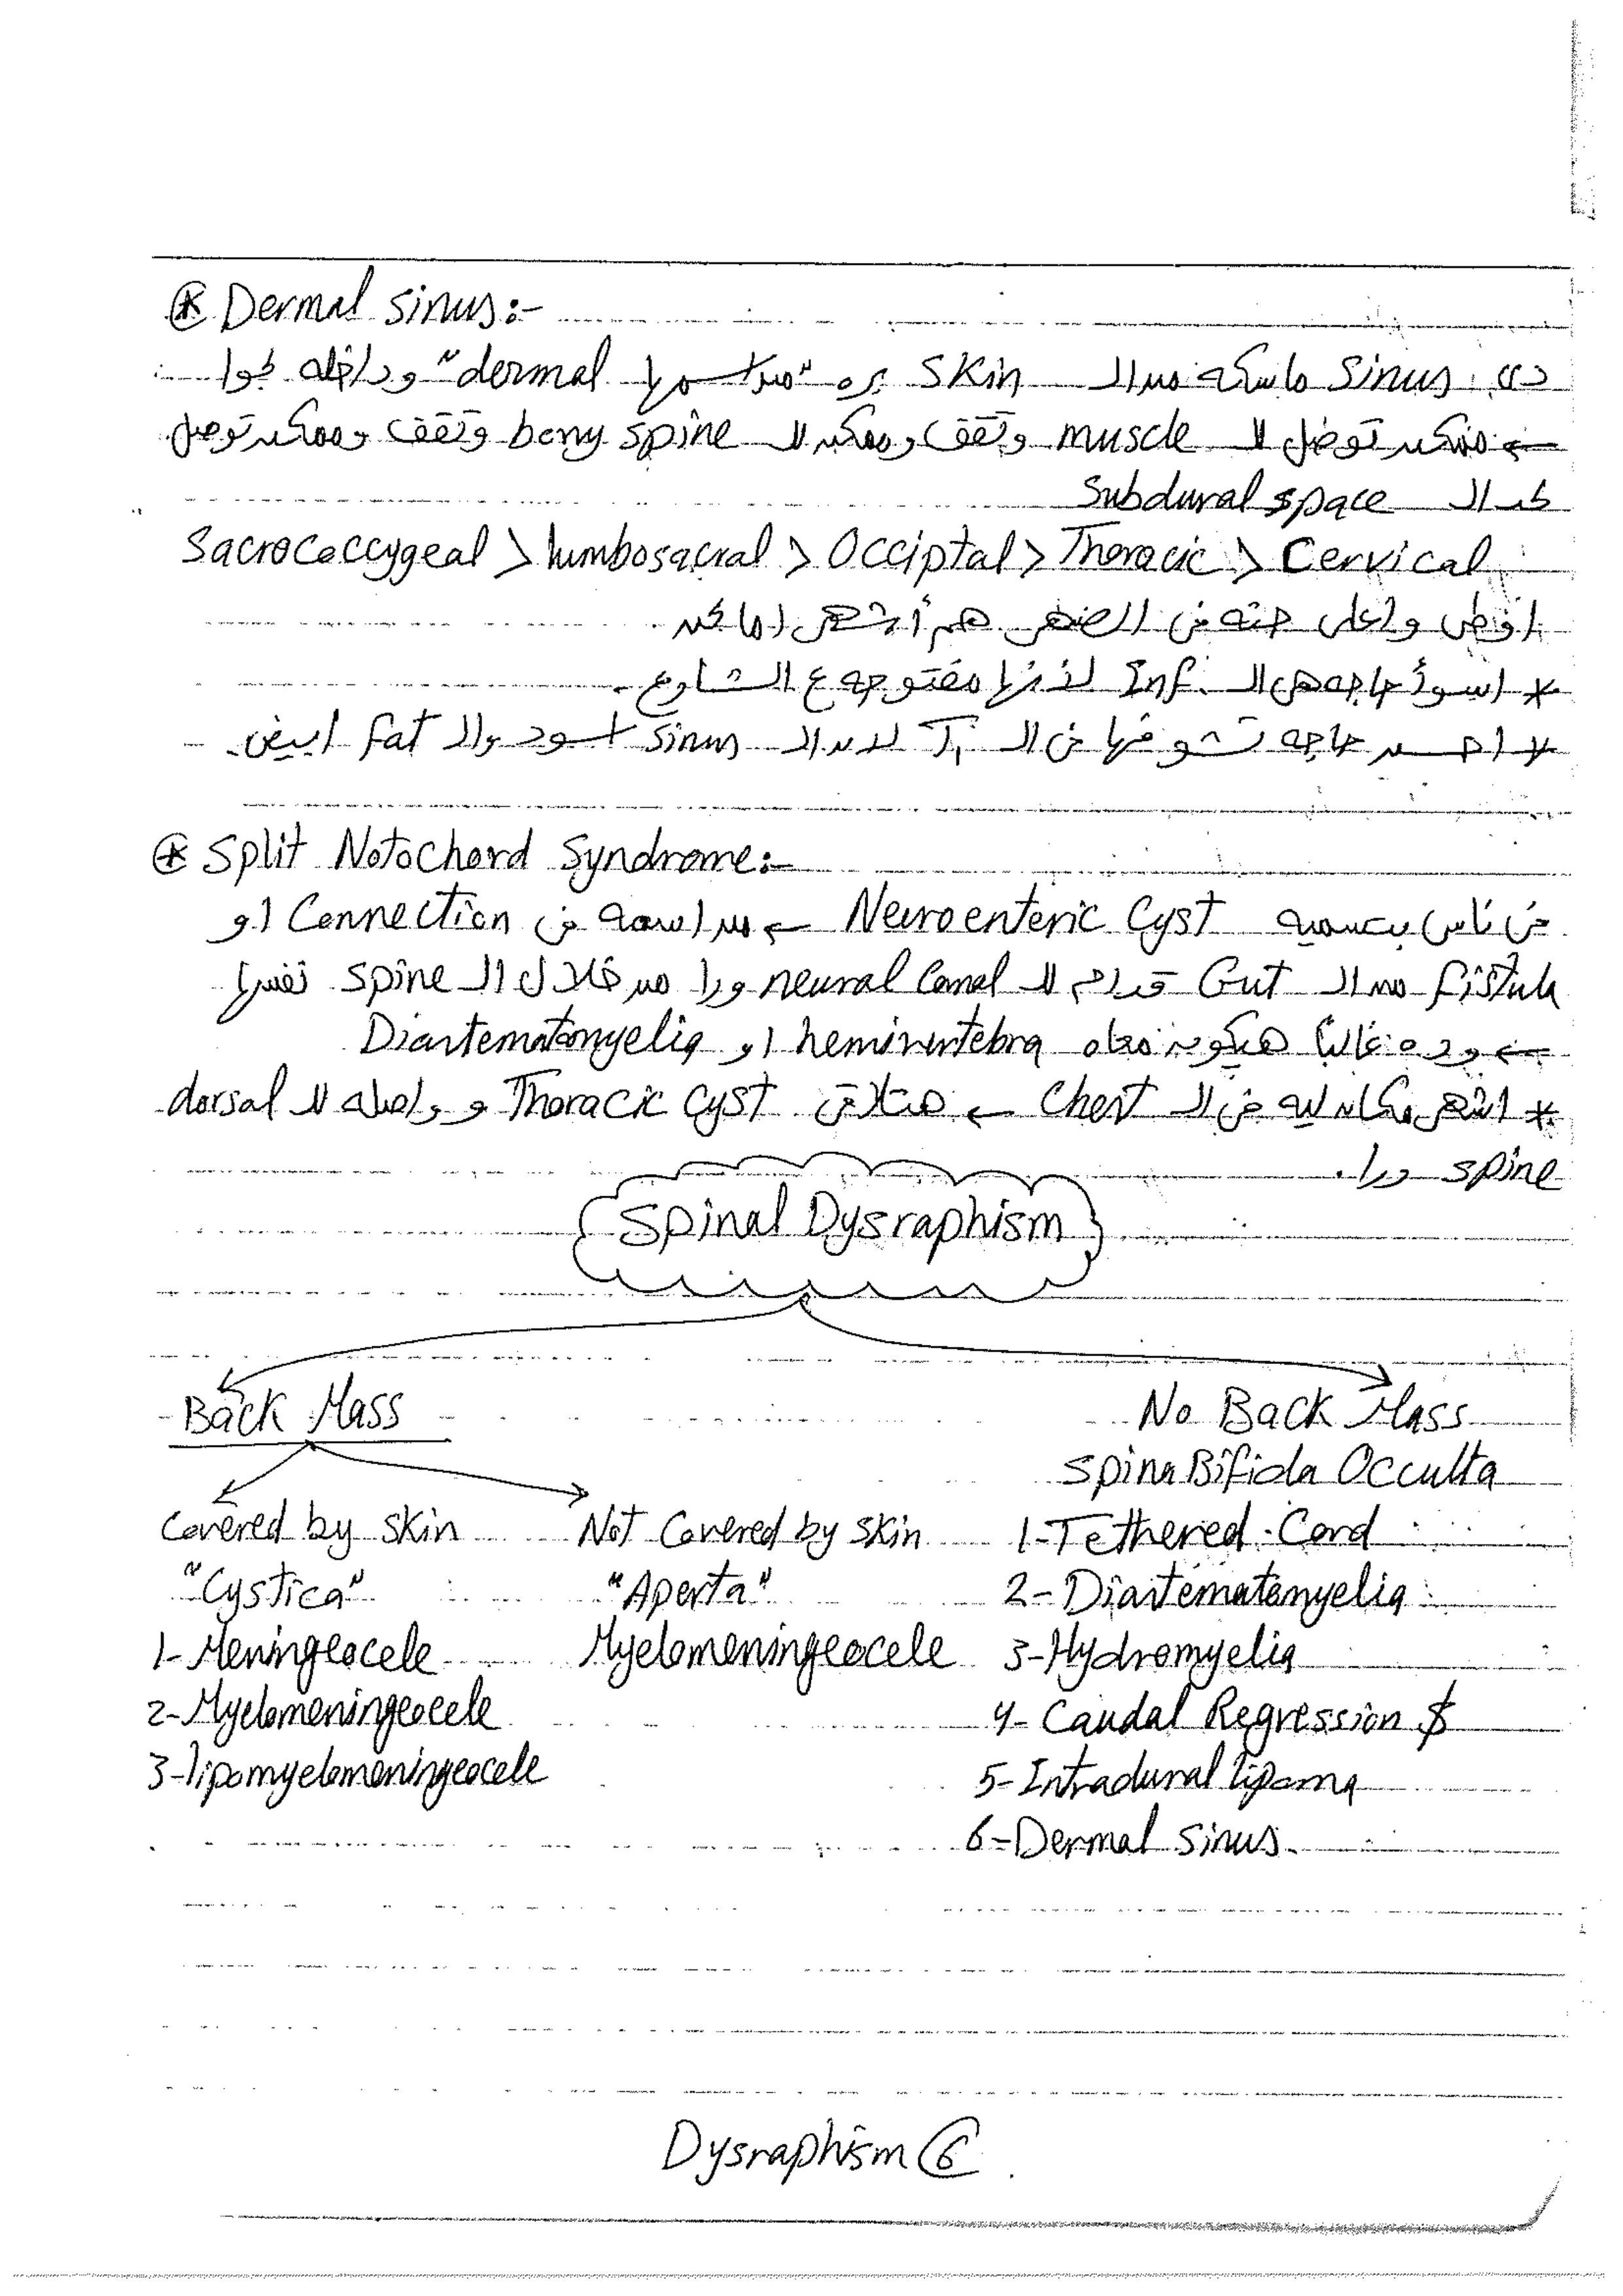 * Dermal Sinus:-
دي Sinus ماسكه من الـ Skin بره "من اسمها dermal" وداخله جوا
← ممكن توصل لـ muscle وتقف وممكن لـ bony spine وتقف وممكن توصل
لحد الـ Subdural space
Sacrococcygeal > lumbosacral > Occiptal > Thoracic > Cervical
اوطى واعلى حته في الضهر هم أشهر اماكن
* اسوأ حاجه هي الـ Inf. لانها مفتوحه ع الشارع.
* احسن حاجه تشوفها في الـ T1 لان الـ Sinus اسود والـ fat ابيض.
* Split Notochord Syndrome:-
في ناس بتسميه Neuroenteric Cyst ← من اسمه في Connection او
fistula من الـ Gut قدام لـ neural Canal ورا من خلال الـ spine نفسها
← وده غالبًا هيكون معاه hemivertebra او Diastematomyelia
* اشهر مكان ليه في الـ Chest ← هتلاقي Thoracic Cyst وواصله لـ dorsal
spine ورا.
Spinal Dysraphism
Back Mass
No Back Mass
Spina Bifida Occulta
Covered by skin
"Cystica"
1- Meningeocele
2- Myelomeningeocele
3- lipomyelomeningeocele
Not Covered by skin
"Aperta"
Myelomeningeocele
1- Tethered Cord
2- Diastematomyelia
3- Hydromyelia
4- Caudal Regression $
5- Intradural lipoma
6- Dermal sinus.
Dysraphism 6